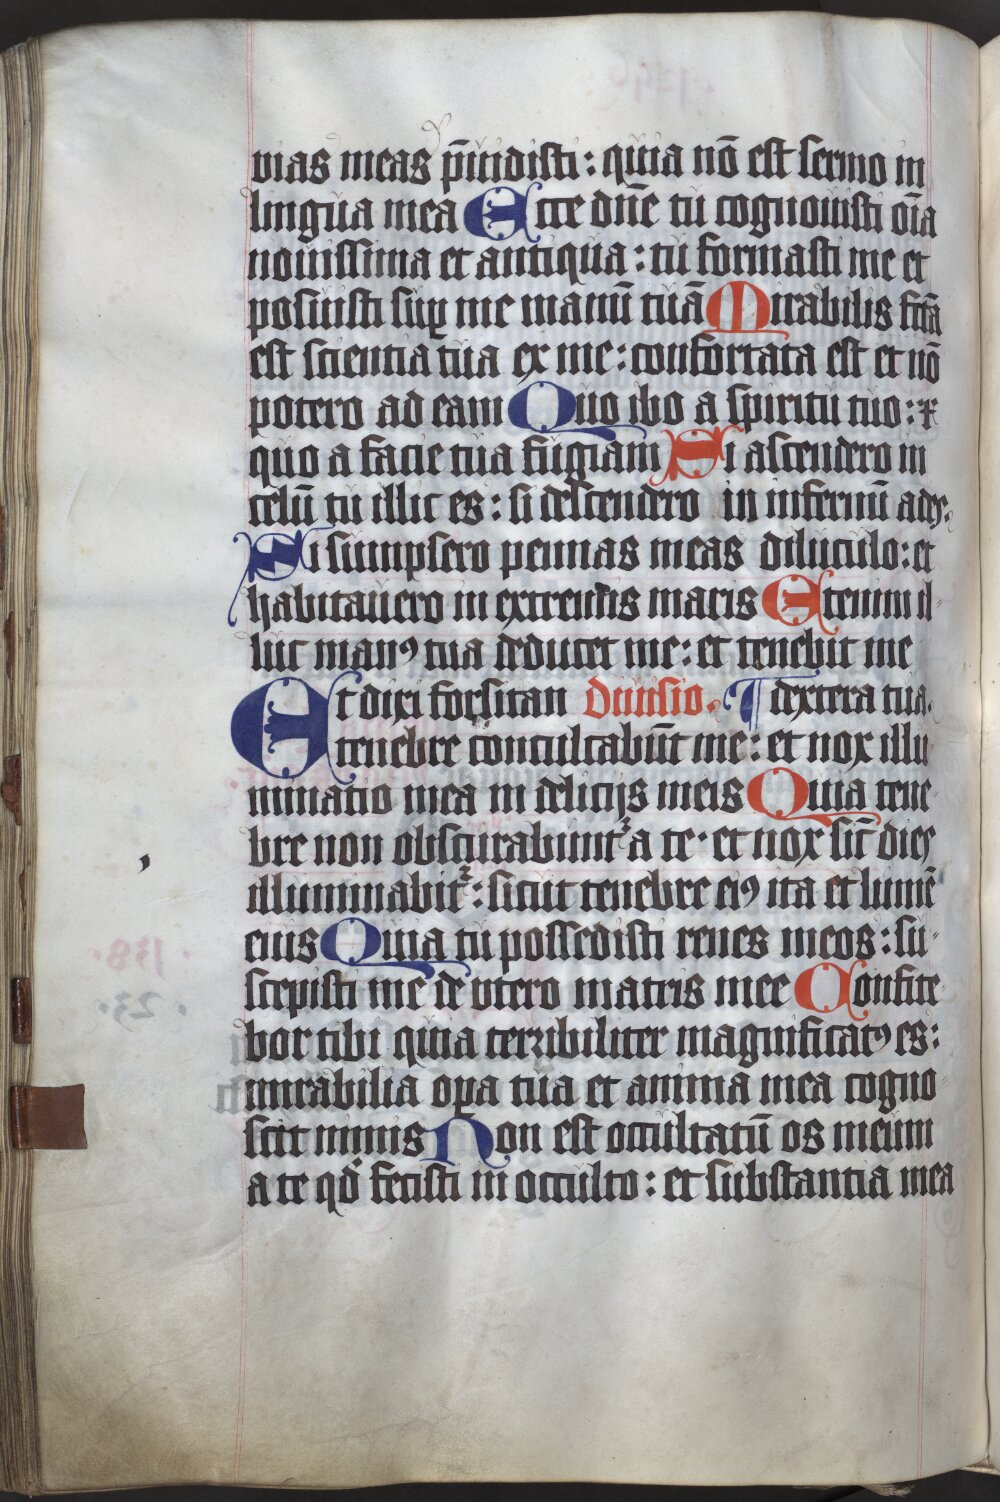 vias meas p̄uidisti : quia nō est sermo in
lingua mea Ecce dn̄e tu cognouisti oīa
nouissima et antiqua : tu formasti me et
posuisti suꝑ me manū tuā Mirabilis fc̄a
est scientia tua ex me : confortata est et nō
potero ad eam Quo ibo a spiritu tuo : ⁊
quo a facie tua fugiam Si ascendero in
celū tu illic es : si descendero in infernū ades.
Si sumpsero pennas meas diluculo : et
habitauero in extremis maris Etenim il-
luc manꝰ tua deducet me : et tenebit me
Et dixi forsitan Diuisio. ¶ dextera tua.
tenebre conculcabūt me : et nox illu
minatio mea in delicijs meis Quia tene-
bre non obscurabunt᷑ a te · et nox sic̄ dies
illuminabit᷑ : sicut tenebre eiꝰ ita et lumē
eius Quia tu possedisti renes meos : su-
scepisti me de vtero matris mee Confite-
bor tibi quia terribiliter magnificatꝰ es :
mirabilia oꝑa tua et anima mea cogno
scit nimis Non est occultatū os meum
a te qd̓ fecisti in occulto : et substantia mea